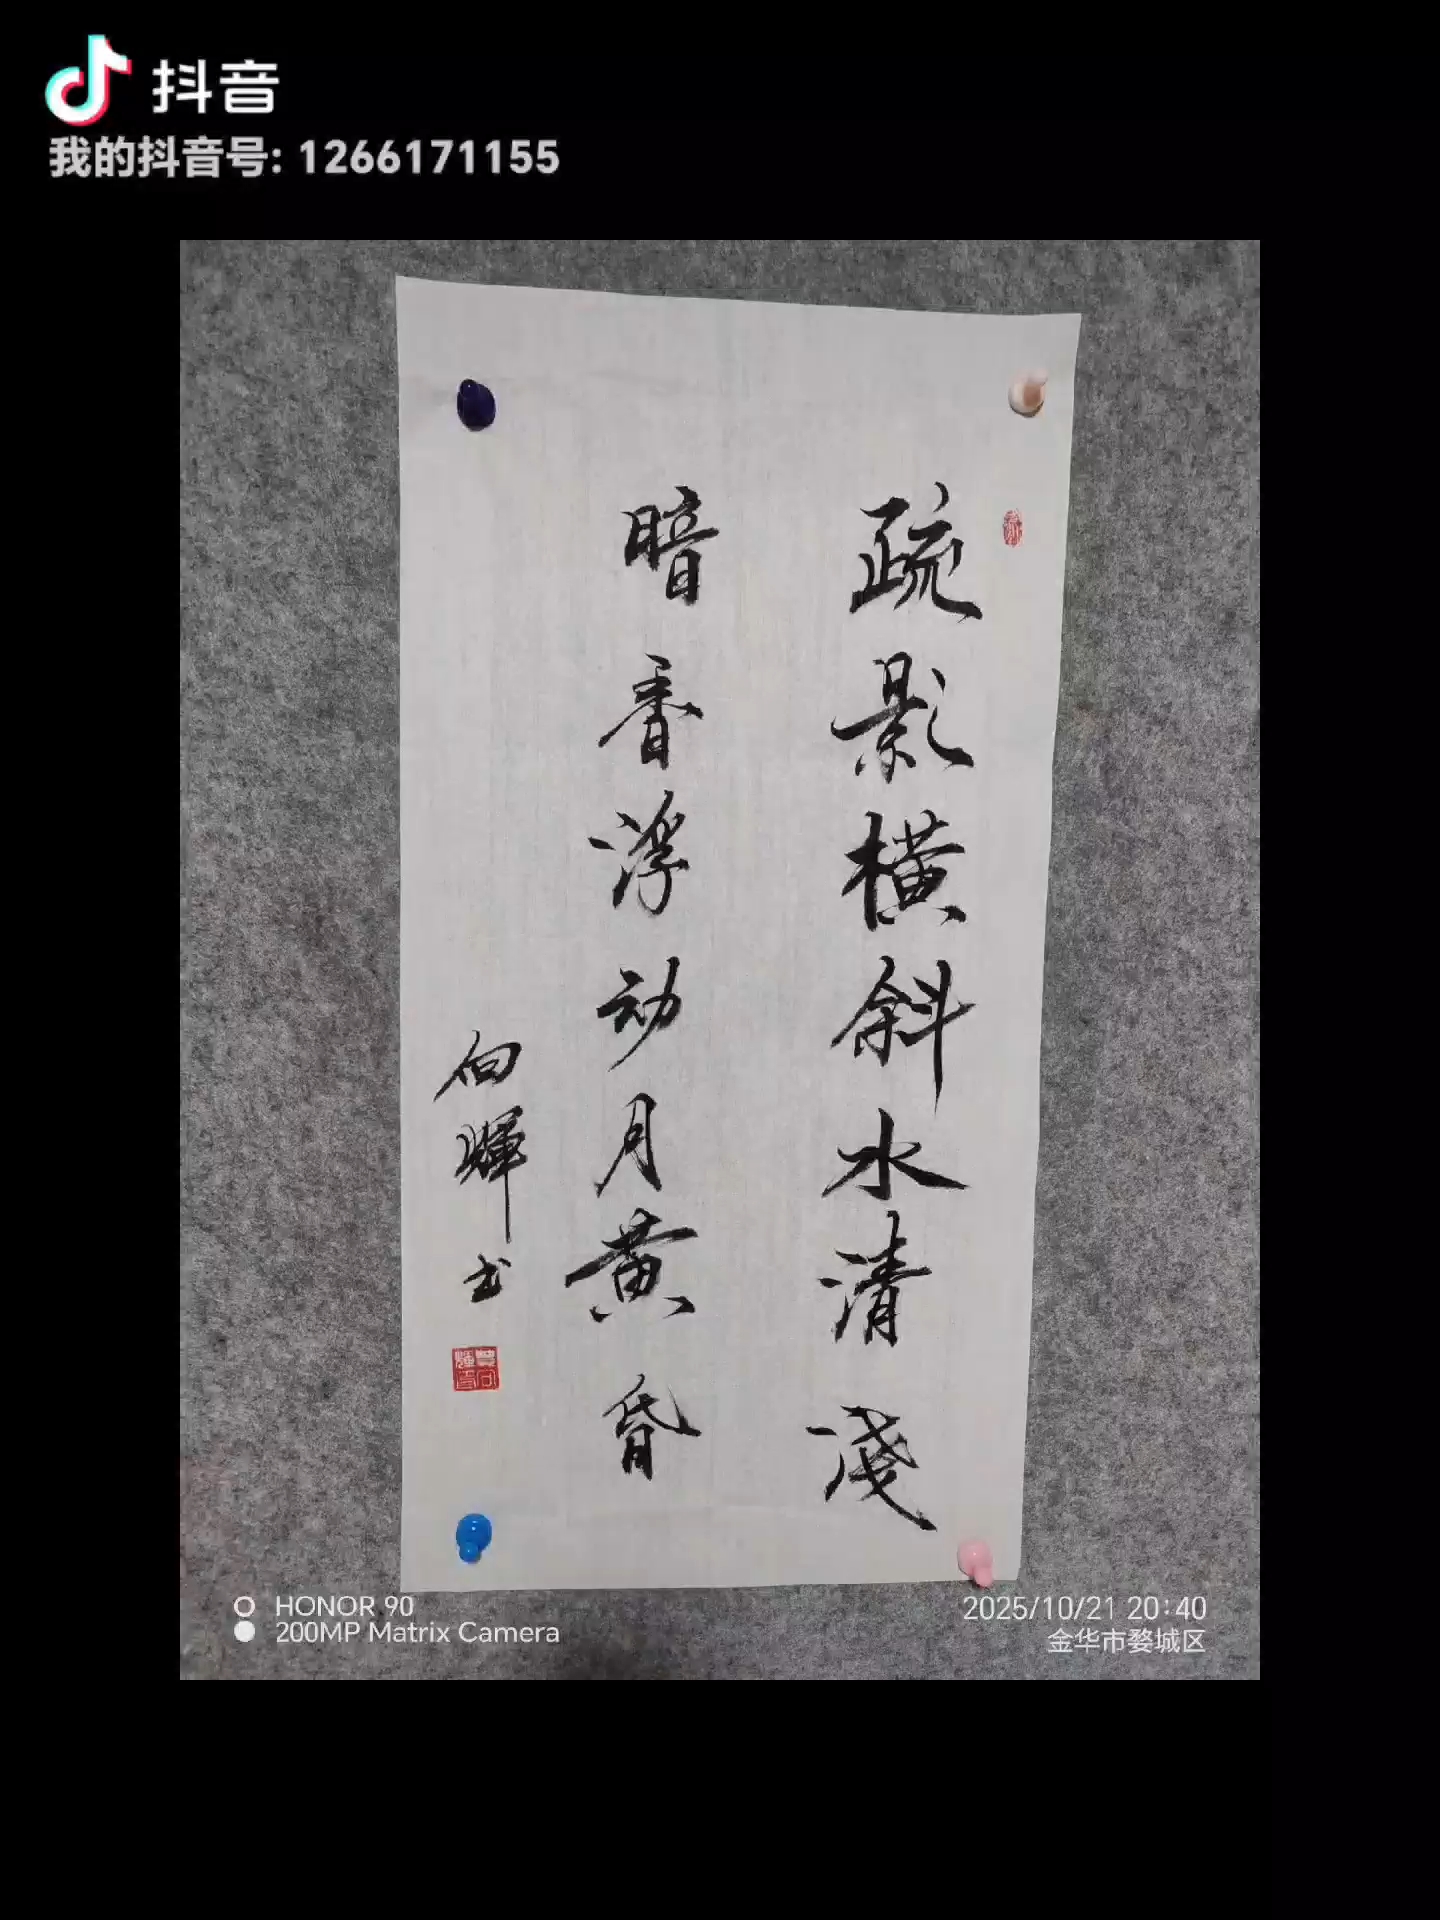 抖音
我的抖音号: 1266171155
疏影横斜水清淺
暗香浮动月黄昏
向暉书
HONOR 90
200MP Matrix Camera
2025/10/21 20:40
金华市婺城区